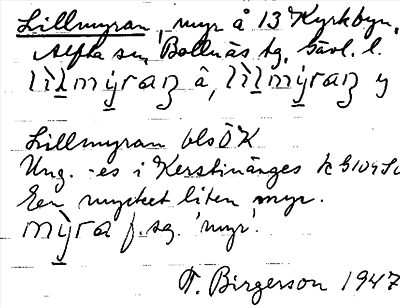 Lillmyran, myr å 13 Kyrkbyn,
Alfta sn, Bollnäs tg. Gävl. l.
lìlmỳraꞃ â, lìlmỳraꞃ y
Lillmyran bls Ö K
Ung. -es i Kerstinänges
En mycket liten myr.
mỳra f. sg. 'myr'.
T. Birgerson 1947